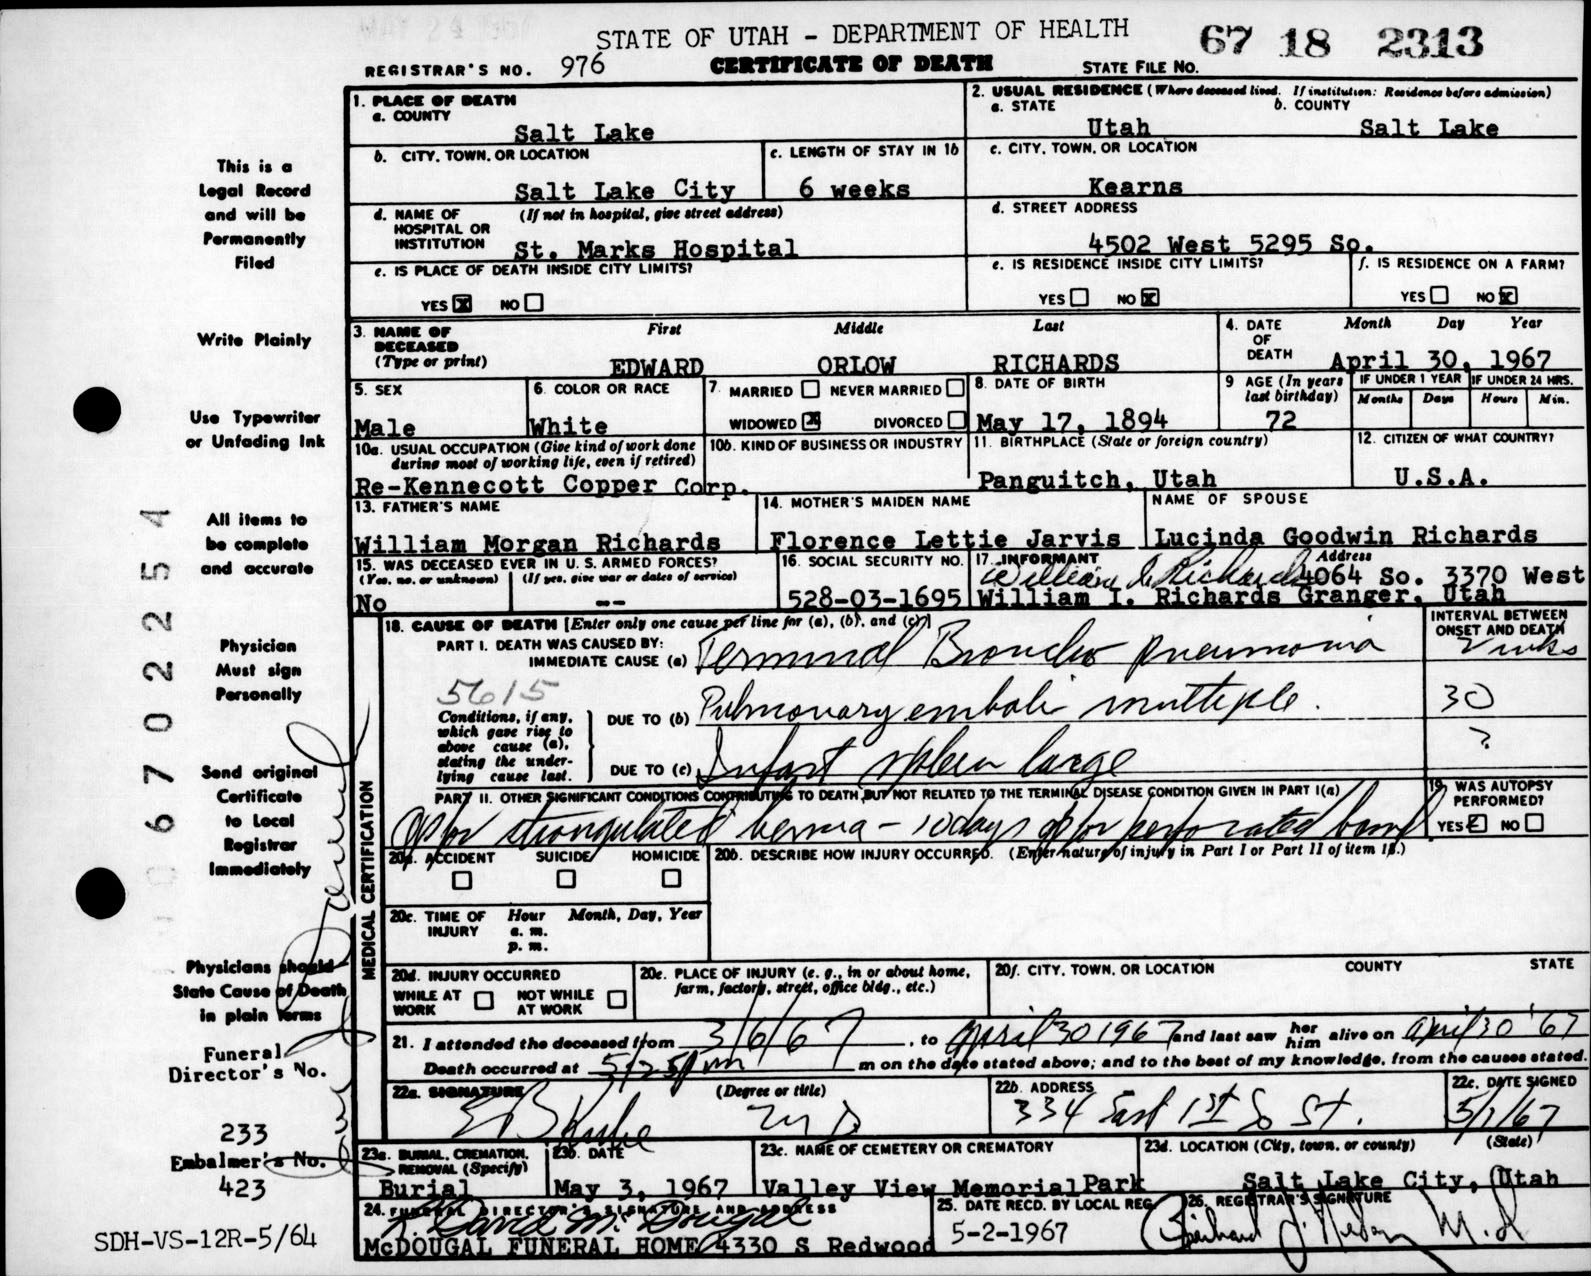 STATE OF UTAH - DEPARTMENT OF HEALTH
67 18 2313
REGISTRAR'S NO. 976
CERTIFICATE OF DEATH
STATE FILE NO.
This is a
Legal Record
and will be
Permanently
Filed
Write Plainly
Use Typewriter
or Unfading Ink
All items to
be complete
and accurate
Physician
Must sign
Personally
Send original
Certificate
to Local
Registrar
Immediately
Physicians should
State Cause of Death
in plain terms
Funeral
Director's No.
233
Embalmer's No.
423
SDH-VS-12R-5/64
0 6 7 0 2 2 5 4
1. PLACE OF DEATH
a. COUNTY
Salt Lake
2. USUAL RESIDENCE (Where deceased lived. If institution: Residence before admission)
a. STATE b. COUNTY
Utah Salt Lake
b. CITY, TOWN, OR LOCATION
Salt Lake City
c. LENGTH OF STAY IN 1b
6 weeks
c. CITY, TOWN, OR LOCATION
Kearns
d. NAME OF HOSPITAL OR INSTITUTION (If not in hospital, give street address)
St. Marks Hospital
d. STREET ADDRESS
4502 West 5295 So.
e. IS PLACE OF DEATH INSIDE CITY LIMITS?
YES X NO
e. IS RESIDENCE INSIDE CITY LIMITS?
YES NO X
f. IS RESIDENCE ON A FARM?
YES NO X
3. NAME OF DECEASED (Type or print)
First Middle Last
EDWARD ORLOW RICHARDS
4. DATE OF DEATH
Month Day Year
April 30, 1967
5. SEX
Male
6. COLOR OR RACE
White
7. MARRIED NEVER MARRIED
WIDOWED X DIVORCED
8. DATE OF BIRTH
May 17, 1894
9 AGE (In years last birthday)
72
IF UNDER 1 YEAR
Months Days
IF UNDER 24 HRS.
Hours Min.
10a. USUAL OCCUPATION (Give kind of work done during most of working life, even if retired)
Re-Kennecott Copper Corp.
10b. KIND OF BUSINESS OR INDUSTRY
11. BIRTHPLACE (State or foreign country)
Panguitch, Utah
12. CITIZEN OF WHAT COUNTRY?
U.S.A.
13. FATHER'S NAME
William Morgan Richards
14. MOTHER'S MAIDEN NAME
Florence Lettie Jarvis
NAME OF SPOUSE
Lucinda Goodwin Richards
15. WAS DECEASED EVER IN U.S. ARMED FORCES?
(Yes, no, or unknown) (If yes, give war or dates of service)
No --
16. SOCIAL SECURITY NO.
528-03-1695
17. INFORMANT Address
William I. Richards 4064 So. 3370 West
William I. Richards Granger, Utah
MEDICAL CERTIFICATION
18. CAUSE OF DEATH [Enter only one cause per line for (a), (b), and (c)]
INTERVAL BETWEEN ONSET AND DEATH
PART I. DEATH WAS CAUSED BY:
IMMEDIATE CAUSE (a) Terminal Broncho pneumonia 2 wks
5615
Conditions, if any, which gave rise to above cause (a), stating the underlying cause last.
DUE TO (b) Pulmonary emboli multiple. 30
DUE TO (c) Infart spleen large ?
PART II. OTHER SIGNIFICANT CONDITIONS CONTRIBUTING TO DEATH BUT NOT RELATED TO THE TERMINAL DISEASE CONDITION GIVEN IN PART I(a)
op for strangulated hernia - 10 days op for perforated bowel
19. WAS AUTOPSY PERFORMED?
YES NO
20a. ACCIDENT SUICIDE HOMICIDE
20b. DESCRIBE HOW INJURY OCCURRED. (Enter nature of injury in Part I or Part II of item 18.)
20c. TIME OF INJURY Hour Month, Day, Year
a. m.
p. m.
20d. INJURY OCCURRED
WHILE AT WORK NOT WHILE AT WORK
20e. PLACE OF INJURY (e. g., in or about home, farm, factory, street, office bldg., etc.)
20f. CITY, TOWN, OR LOCATION COUNTY STATE
21. I attended the deceased from 3/6/67, to April 30 1967 and last saw her him alive on April 30 '67
Death occurred at 5:25 pm m on the date stated above; and to the best of my knowledge, from the causes stated.
22a. SIGNATURE (Degree or title)
M D
22b. ADDRESS
334 East 1st So St.
22c. DATE SIGNED
5/1/67
23a. BURIAL, CREMATION, REMOVAL (Specify)
Burial
23b. DATE
May 3, 1967
23c. NAME OF CEMETERY OR CREMATORY
Valley View Memorial Park
23d. LOCATION (City, town, or county) (State)
Salt Lake City, Utah
24. FUNERAL DIRECTOR'S SIGNATURE AND ADDRESS
R. David McDougal
McDOUGAL FUNERAL HOME 4330 S Redwood
25. DATE RECD. BY LOCAL REG.
5-2-1967
26. REGISTRAR'S SIGNATURE
M.D.